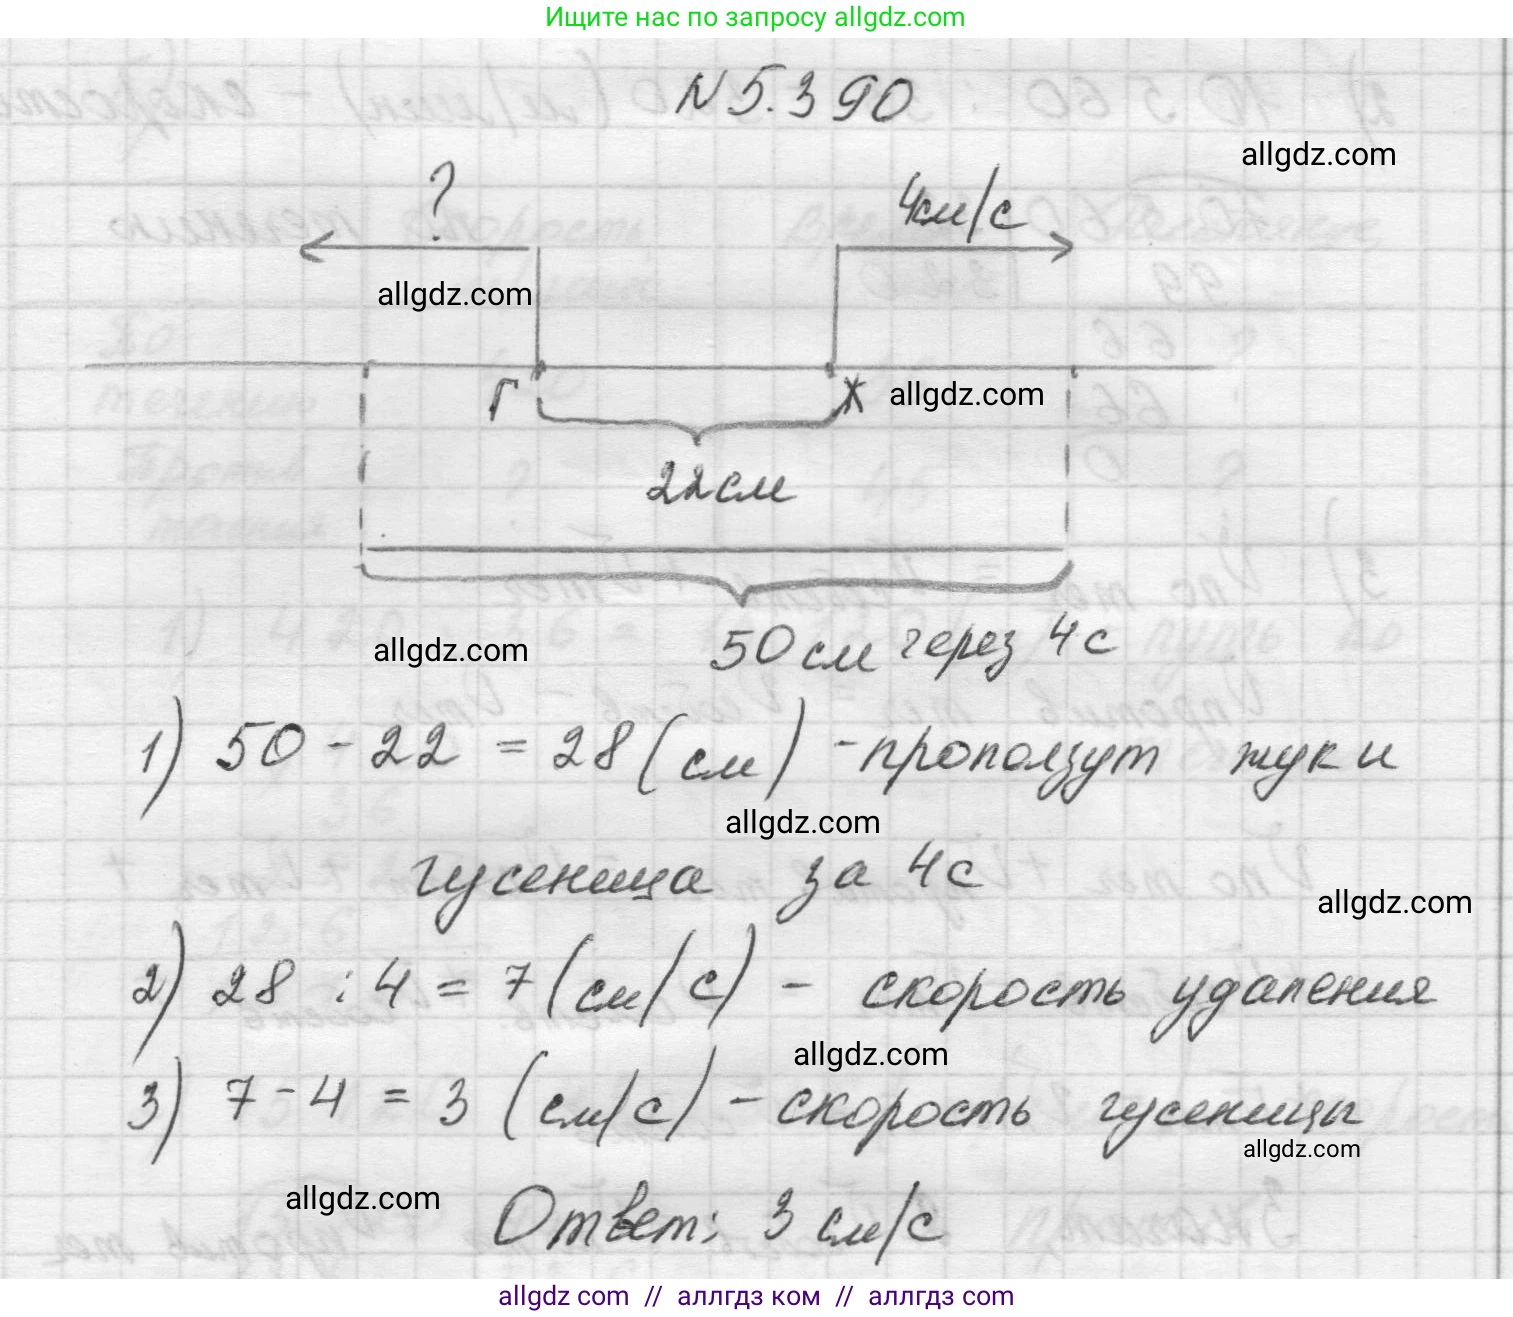 Ищите нас по запросу allgdz.com
N 5.390
allgdz.com
? 4см/с
allgdz.com
Г Ж allgdz.com
22см
50 см через 4с
allgdz.com
1) 50 - 22 = 28 (см) - проползут жук и
allgdz.com
гусеница за 4с
allgdz.com
2) 28 : 4 = 7 (см/с) - скорость удаления
allgdz.com
3) 7 - 4 = 3 (см/с) - скорость гусеницы
allgdz.com
allgdz.com
Ответ: 3 см/с
allgdz com // аллгдз ком // аллгдз com